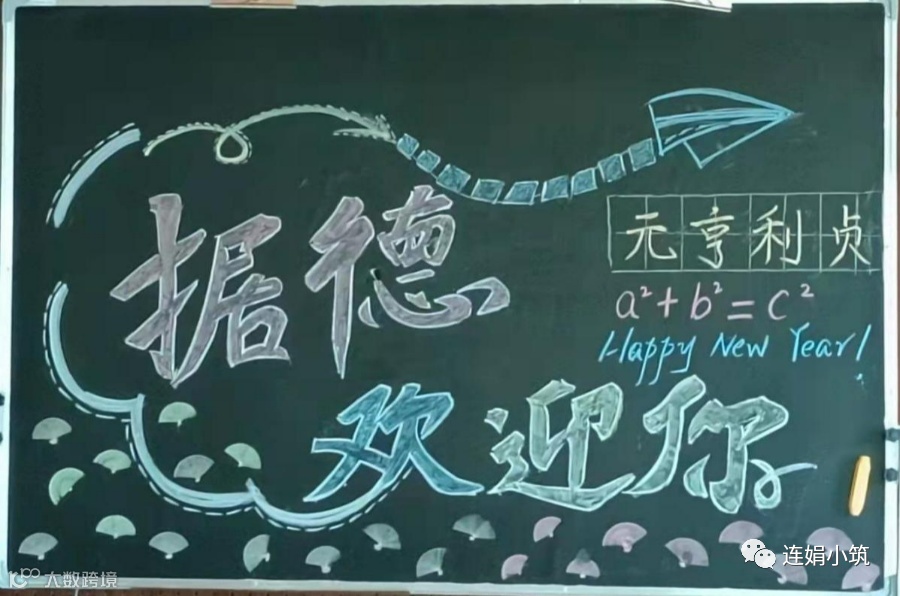 据德
元亨利贞
a²+b²=c²
Happy New Year!
欢迎你
连娟小筑
大数跨境